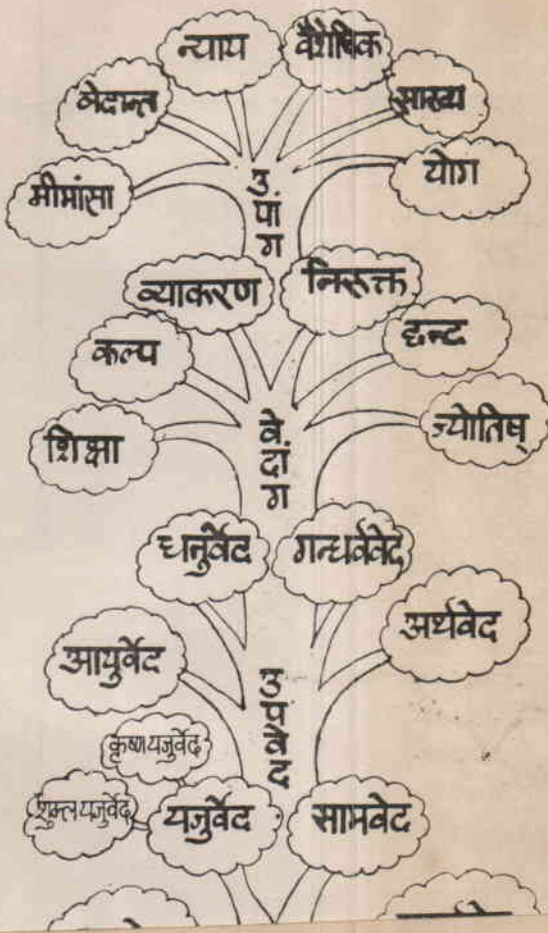 न्याय
वैशेषिक
वेदान्त
सांख्य
मीमांसा
योग
उपांग
व्याकरण
निरुक्त
कल्प
छन्द
शिक्षा
ज्योतिष्
वेदांग
धनुर्वेद
गन्धर्ववेद
आयुर्वेद
अर्थवेद
उपवेद
कृष्णयजुर्वेद
शुक्लयजुर्वेद
यजुर्वेद
सामवेद